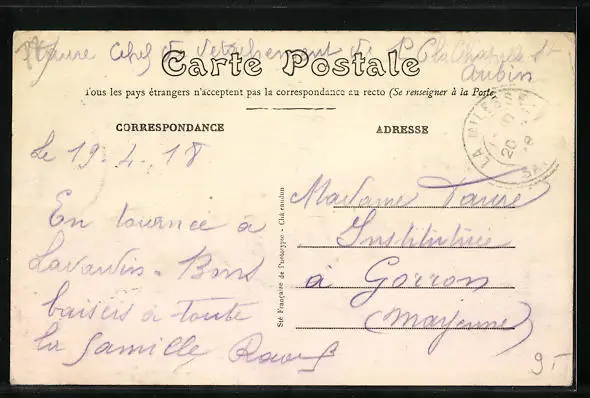 Faure chef de détachement de P. G. la Chapelle St
Aubin
Carte Postale
Tous les pays étrangers n'acceptent pas la correspondance au recto (Se renseigner à la Poste)
CORRESPONDANCE
ADRESSE
LA MILESSE
20
18
Le 19-4-18
En tournée à
Lavardin - Bons
baisers à toute
la famille
Sté Française de Phototypie - Châteaudun
Madame Faure
Institutrice
à Gorron
(Mayenne)
9.-